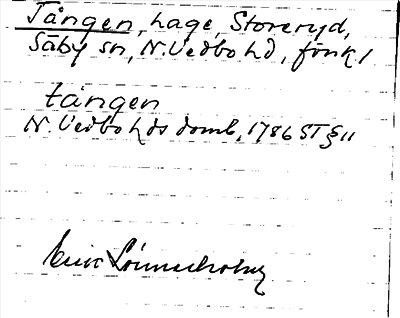 Tången, hage, Storeryd,
Säby sn, N. Vedbo hd, Jönk. l
tången
N. Vedbo hds domb, 1786 ST § 11